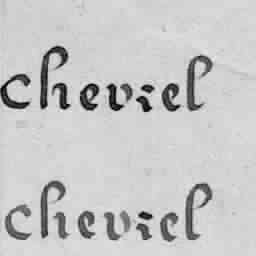 cheviel
cheviel